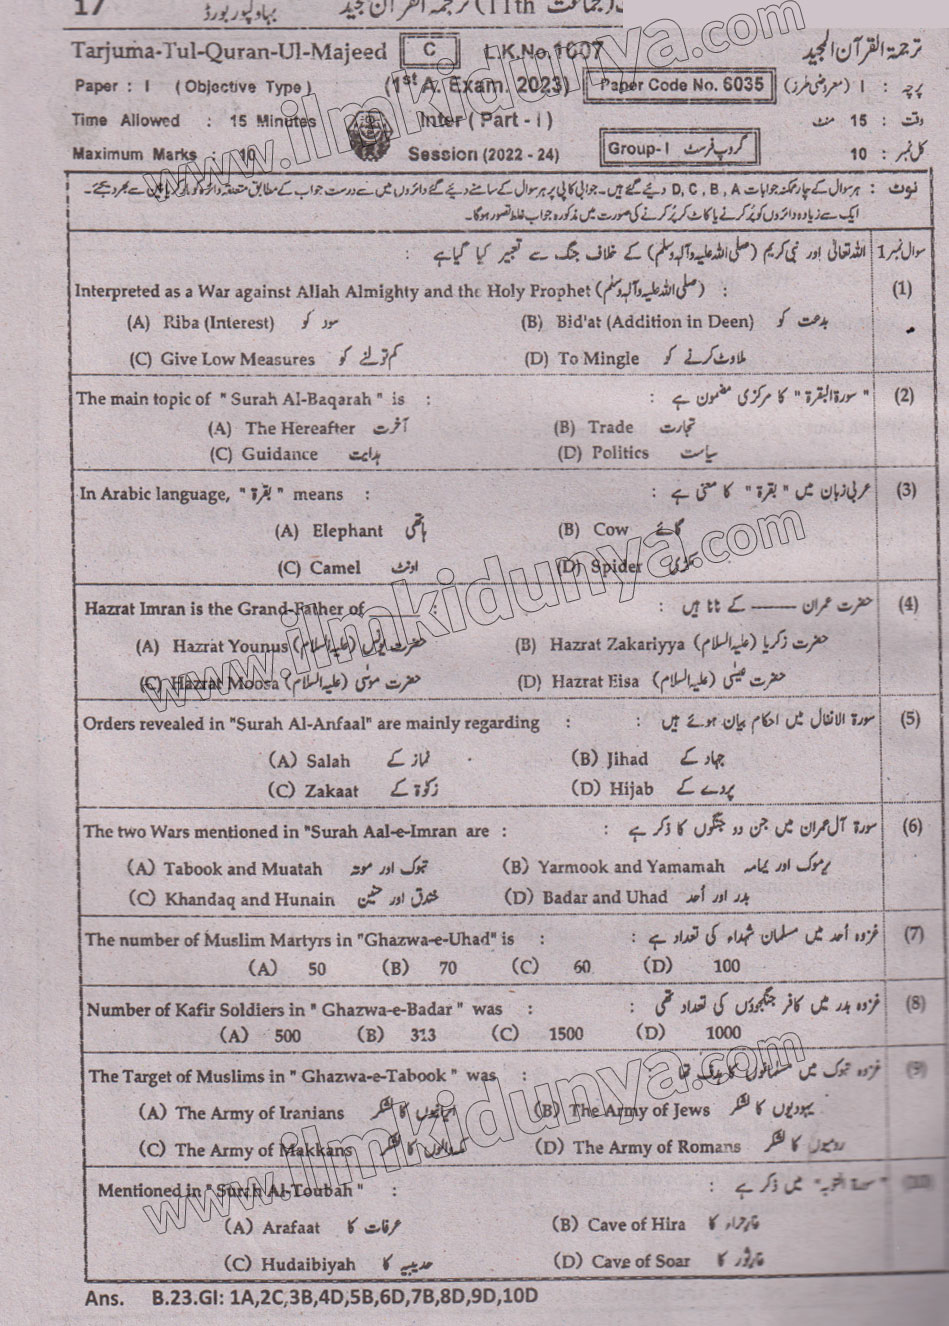 17 (جماعت 11th) ترجمۃ القرآن المجید بہاولپور بورڈ
Tarjuma-Tul-Quran-Ul-Majeed C L.K.No.1607 ترجمۃ القرآن المجید
Paper : I ( Objective Type ) (1st A. Exam. 2023) Paper Code No. 6035 پرچہ : I (معروضی طرز)
Time Allowed : 15 Minutes Inter ( Part - I ) وقت : 15 منٹ
Maximum Marks : 10 Session (2022 - 24) Group- I گروپ فرسٹ کل نمبر : 10
نوٹ : ہر سوال کے چار ممکنہ جوابات D, C , B , A دیئے گئے ہیں۔ جوابی کاپی پر ہر سوال کے سامنے دیئے گئے دائروں میں سے درست جواب کے مطابق متعلقہ دائرہ کو سے بھر دیجئے۔
ایک سے زیادہ دائروں کو پُر کرنے یا کاٹ کر پُر کرنے کی صورت میں مذکورہ جواب غلط تصور ہوگا۔
سوال نمبر 1 اللہ تعالیٰ اور نبی کریم (صلی اللہ علیہ وآلہ وسلم) کے خلاف جنگ سے تعبیر کیا گیا ہے :
Interpreted as a War against Allah Almighty and the Holy Prophet (صلی اللہ علیہ وآلہ وسلم) : (1)
(A) Riba (Interest) سود کو (B) Bid'at (Addition in Deen) بدعت کو
(C) Give Low Measures کم تولنے کو (D) To Mingle ملاوٹ کرنے کو
The main topic of " Surah Al-Baqarah " is : " سورۃ البقرۃ " کا مرکزی مضمون ہے : (2)
(A) The Hereafter آخرت (B) Trade تجارت
(C) Guidance ہدایت (D) Politics سیاست
In Arabic language, " بقرۃ " means : عربی زبان میں " بقرۃ " کا معنی ہے : (3)
(A) Elephant ہاتھی (B) Cow گائے
(C) Camel اونٹ (D) Spider مکڑی
Hazrat Imran is the Grand-Father of ______ : حضرت عمران ------ کے نانا ہیں : (4)
(A) Hazrat Younus (علیہ السلام) حضرت یونس (B) Hazrat Zakariyya (علیہ السلام) حضرت زکریا
(C) Hazrat Moosa (علیہ السلام) حضرت موسیٰ (D) Hazrat Eisa (علیہ السلام) حضرت عیسیٰ
Orders revealed in "Surah Al-Anfaal" are mainly regarding : سورۃ الانفال میں احکام بیان ہوئے ہیں : (5)
(A) Salah نماز کے (B) Jihad جہاد کے
(C) Zakaat زکوٰۃ کے (D) Hijab پردے کے
The two Wars mentioned in "Surah Aal-e-Imran are : سورۃ آل عمران میں جن دو جنگوں کا ذکر ہے : (6)
(A) Tabook and Muatah تبوک اور موتہ (B) Yarmook and Yamamah یرموک اور یمامہ
(C) Khandaq and Hunain خندق اور حنین (D) Badar and Uhad بدر اور اُحد
The number of Muslim Martyrs in "Ghazwa-e-Uhad" is : غزوہ اُحد میں مسلمان شہداء کی تعداد ہے : (7)
(A) 50 (B) 70 (C) 60 (D) 100
Number of Kafir Soldiers in " Ghazwa-e-Badar " was : غزوہ بدر میں کافر جنگجوؤں کی تعداد تھی : (8)
(A) 500 (B) 313 (C) 1500 (D) 1000
The Target of Muslims in " Ghazwa-e-Tabook " was : غزوہ تبوک میں مسلمانوں کا ہدف تھا (9)
(A) The Army of Iranians ایرانیوں کا لشکر (B) The Army of Jews یہودیوں کا لشکر
(C) The Army of Makkans مکہ والوں کا لشکر (D) The Army of Romans رومیوں کا لشکر
Mentioned in " Surah Al-Toubah " : " سورۃ التوبہ " میں ذکر ہے : (10)
(A) Arafaat عرفات کا (B) Cave of Hira غار حراء کا
(C) Hudaibiyah حدیبیہ کا (D) Cave of Soar غار ثور کا
Ans. B.23.GI: 1A,2C,3B,4D,5B,6D,7B,8D,9D,10D
www.ilmkidunya.com
www.ilmkidunya.com
www.ilmkidunya.com